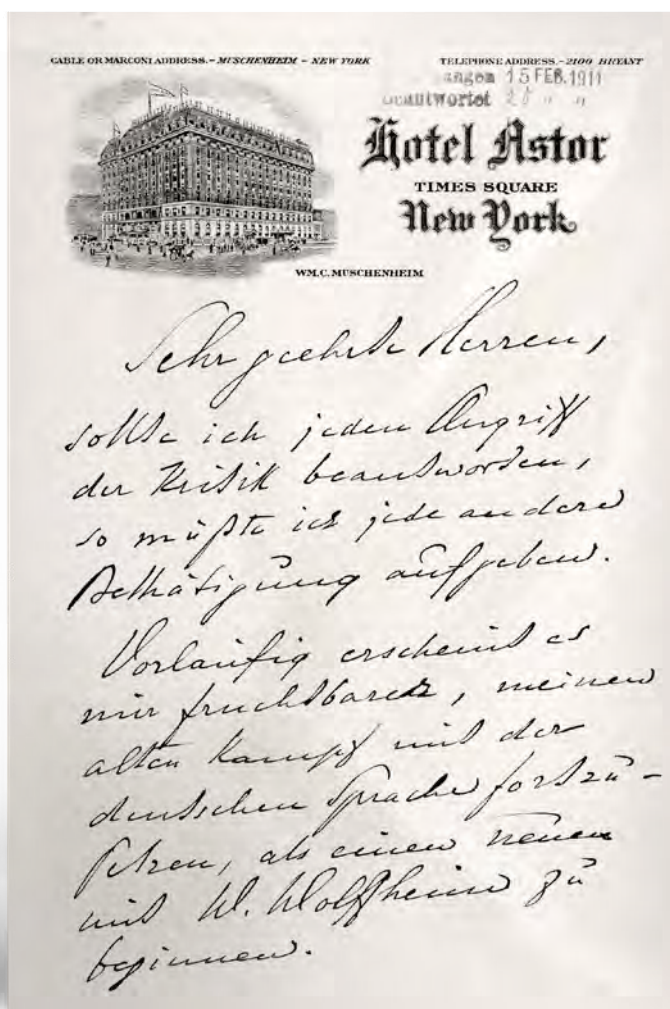 CABLE OR MARCONI ADDRESS.– MUSCHENHEIM – NEW YORK
TELEPHONE ADDRESS.– 2100 BRYANT
15 FEB. 1911
beantwortet
Hotel Astor
TIMES SQUARE
New York
WM. C. MUSCHENHEIM
Sehr geehrte Herren,
sollte ich jeden Angriff
der Kritik beantworten,
so müßte ich jede andere
Bethätigung aufgeben.
Vorläufig erscheint es
mir fruchtbarer, meinen
alten Kampf mit der
deutschen Sprache fortzu-
setzen, als einen neuen
mit W. Wolffheim zu
beginnen.